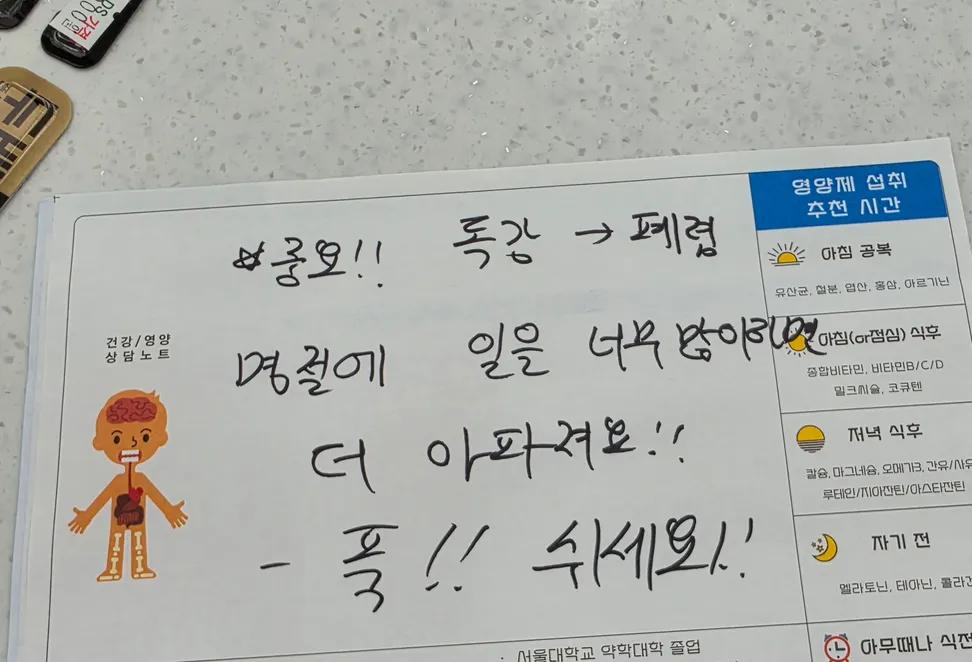 영양제 섭취
추천 시간
☆중요!! 독감 → 폐렴
아침 공복
유산균, 철분, 엽산, 홍삼, 아르기닌
건강/영양
상담노트
명절에 일을 너무 많이하면
아침(or점심) 식후
종합비타민, 비타민B/C/D
밀크씨슬, 코큐텐
더 아파져요!!
저녁 식후
칼슘, 마그네슘, 오메가3, 간유/사유
루테인/지아잔틴/아스타잔틴
- 푹!! 쉬세요!!
자기 전
멜라토닌, 테아닌, 콜라겐
아무때나 식전
· 서울대학교 약학대학 졸업